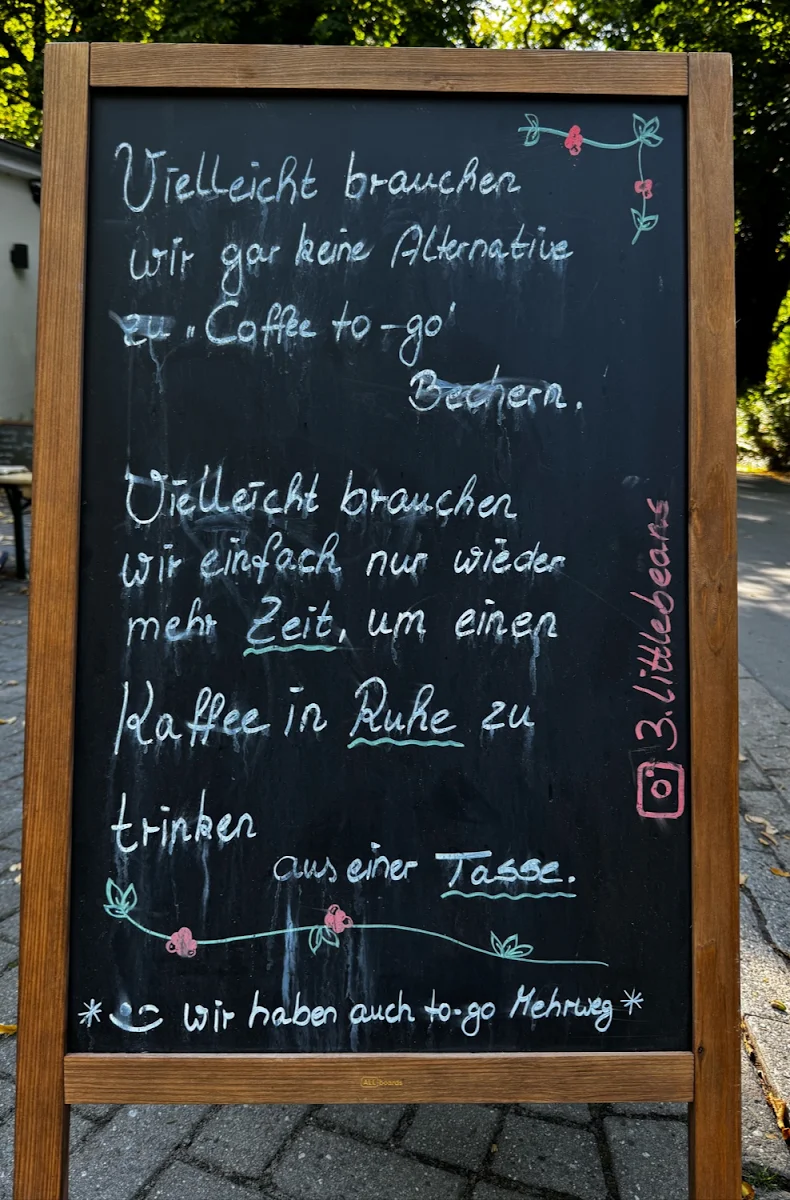 Vielleicht brauchen
wir gar keine Alternative
zu „Coffee to-go'
Bechern.
Vielleicht brauchen
wir einfach nur wieder
mehr Zeit, um einen
Kaffee in Ruhe zu
trinken
aus einer Tasse.
* wir haben auch to-go Mehrweg *
3.littlebeans
ALL boards